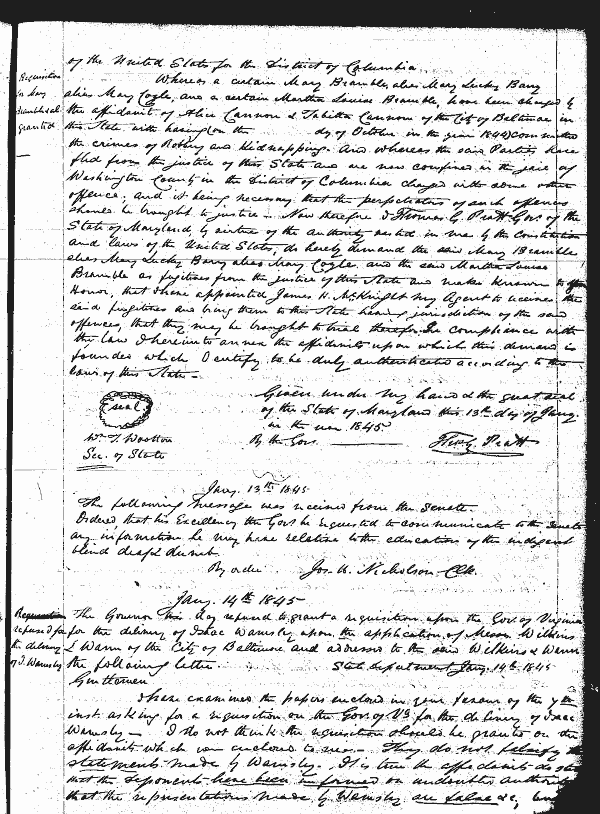 of the United States for the District of Columbia
Requisition
for Mary
Bramble &al
granted
Whereas a certain Mary Bramble, alias Mary Lucky Barry
alias Mary Cogle, and a certain Martha Louisa Bramble, have been charged by
the affidavit of Alice Cannon & Tabitha Cannon of the City of Baltimore in
this State with having on the day of October in the year 1844 Committed
the crimes of Robbery and Kidnapping. And whereas the said Parties have
fled from the justice of this State and are now confined in the jail of
Washington County in the District of Columbia charged with some other
offence; and it being necessary that the perpetrators of such offences
should be brought to justice. Now therefore I Thomas G. Pratt Govr. of the
State of Maryland, by virtue of the authority vested in me by the Constitution
and laws of the United States, do hereby demand the said Mary Bramble
alias Mary Lucky Barry alias Mary Cogle, and the said Martha Louisa
Bramble as fugitives from the justice of this State and makes known to
Honor, that I have appointed James H. McKnight my Agent to receive the
said fugitives and bring them to this State having jurisdiction of the said
offences, that they may be brought to trial therefor. In compliance with
the law I hereunto annex the affidavits upon which this demand is
founded which I certify to be duly authenticated according to the
laws of this State.
seal
Given under my hand & the great seal
of the State of Maryland this 13th day of Jany.
in the year 1845
Wm. T. Wootton
Sec. of State
By the Govr.
Tho: G. Pratt
Jany. 13th 1845
The following message was received from the Senate
Ordered, that his Excellency the Govr. be requested to communicate to the Senate
any information he may have relative to the education of the indigent
blind deaf & dumb.
By order Jos. H. Nicholson Clk.
Jany. 14th 1845
Requisition
refused for
the delivery
of I. Wamsley
The Governor this day refused to grant a requisition upon the Govr. of Virginia
for the delivery of Isaac Wamsley upon the application of Messrs. Wilkins
& Wann of the City of Baltimore and addressed to the said Wilkins & Wann
the following letter. State department Jany. 14th 1845
Gentlemen
I have examined the papers enclosed in your favour of the 7th
inst. asking for a requisition on the Govr. of Va for the delivery of Isaac
Wamsley. I do not think the requisition should be granted on the
affidavits which you enclosed to me. They do not falsify the
statements made by Wamsley. It is true the affidavits do state
that the deponents have been informed on undoubted authority
that the representations made by Wamsley are false &c, but